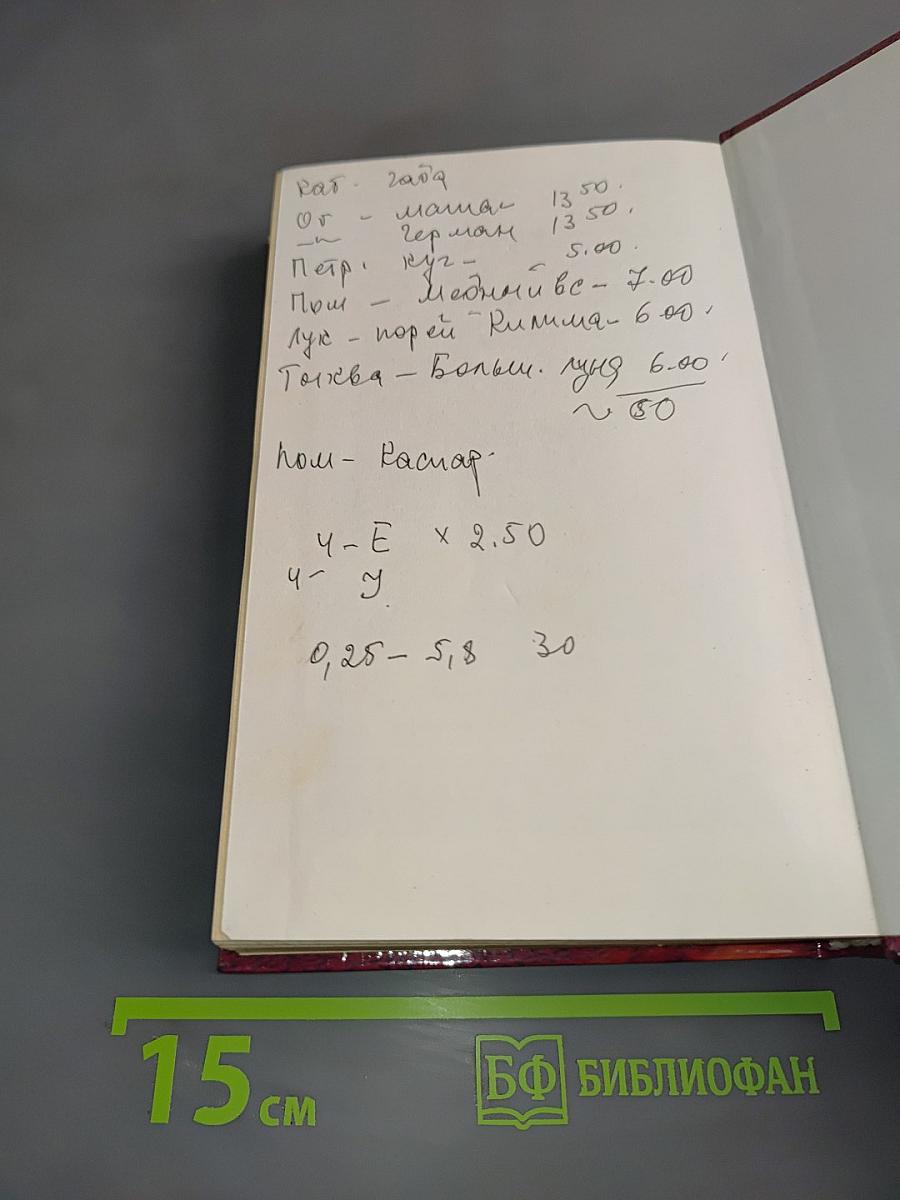 Каб. Зада
Ог - маша- 13 50.
-"- Герман 13 50.
Петр. куч- 5.00.
Пом - Медный вс - 7.00
Лук - порей Килима- 6.00.
Тыква - Больш. луна 6.00.
~ 50
Пом - Каспар.
Ч - Е х 2.50
Ч - У
0,25 - 5,8 30
15 см
БФ БИБЛИОФАН